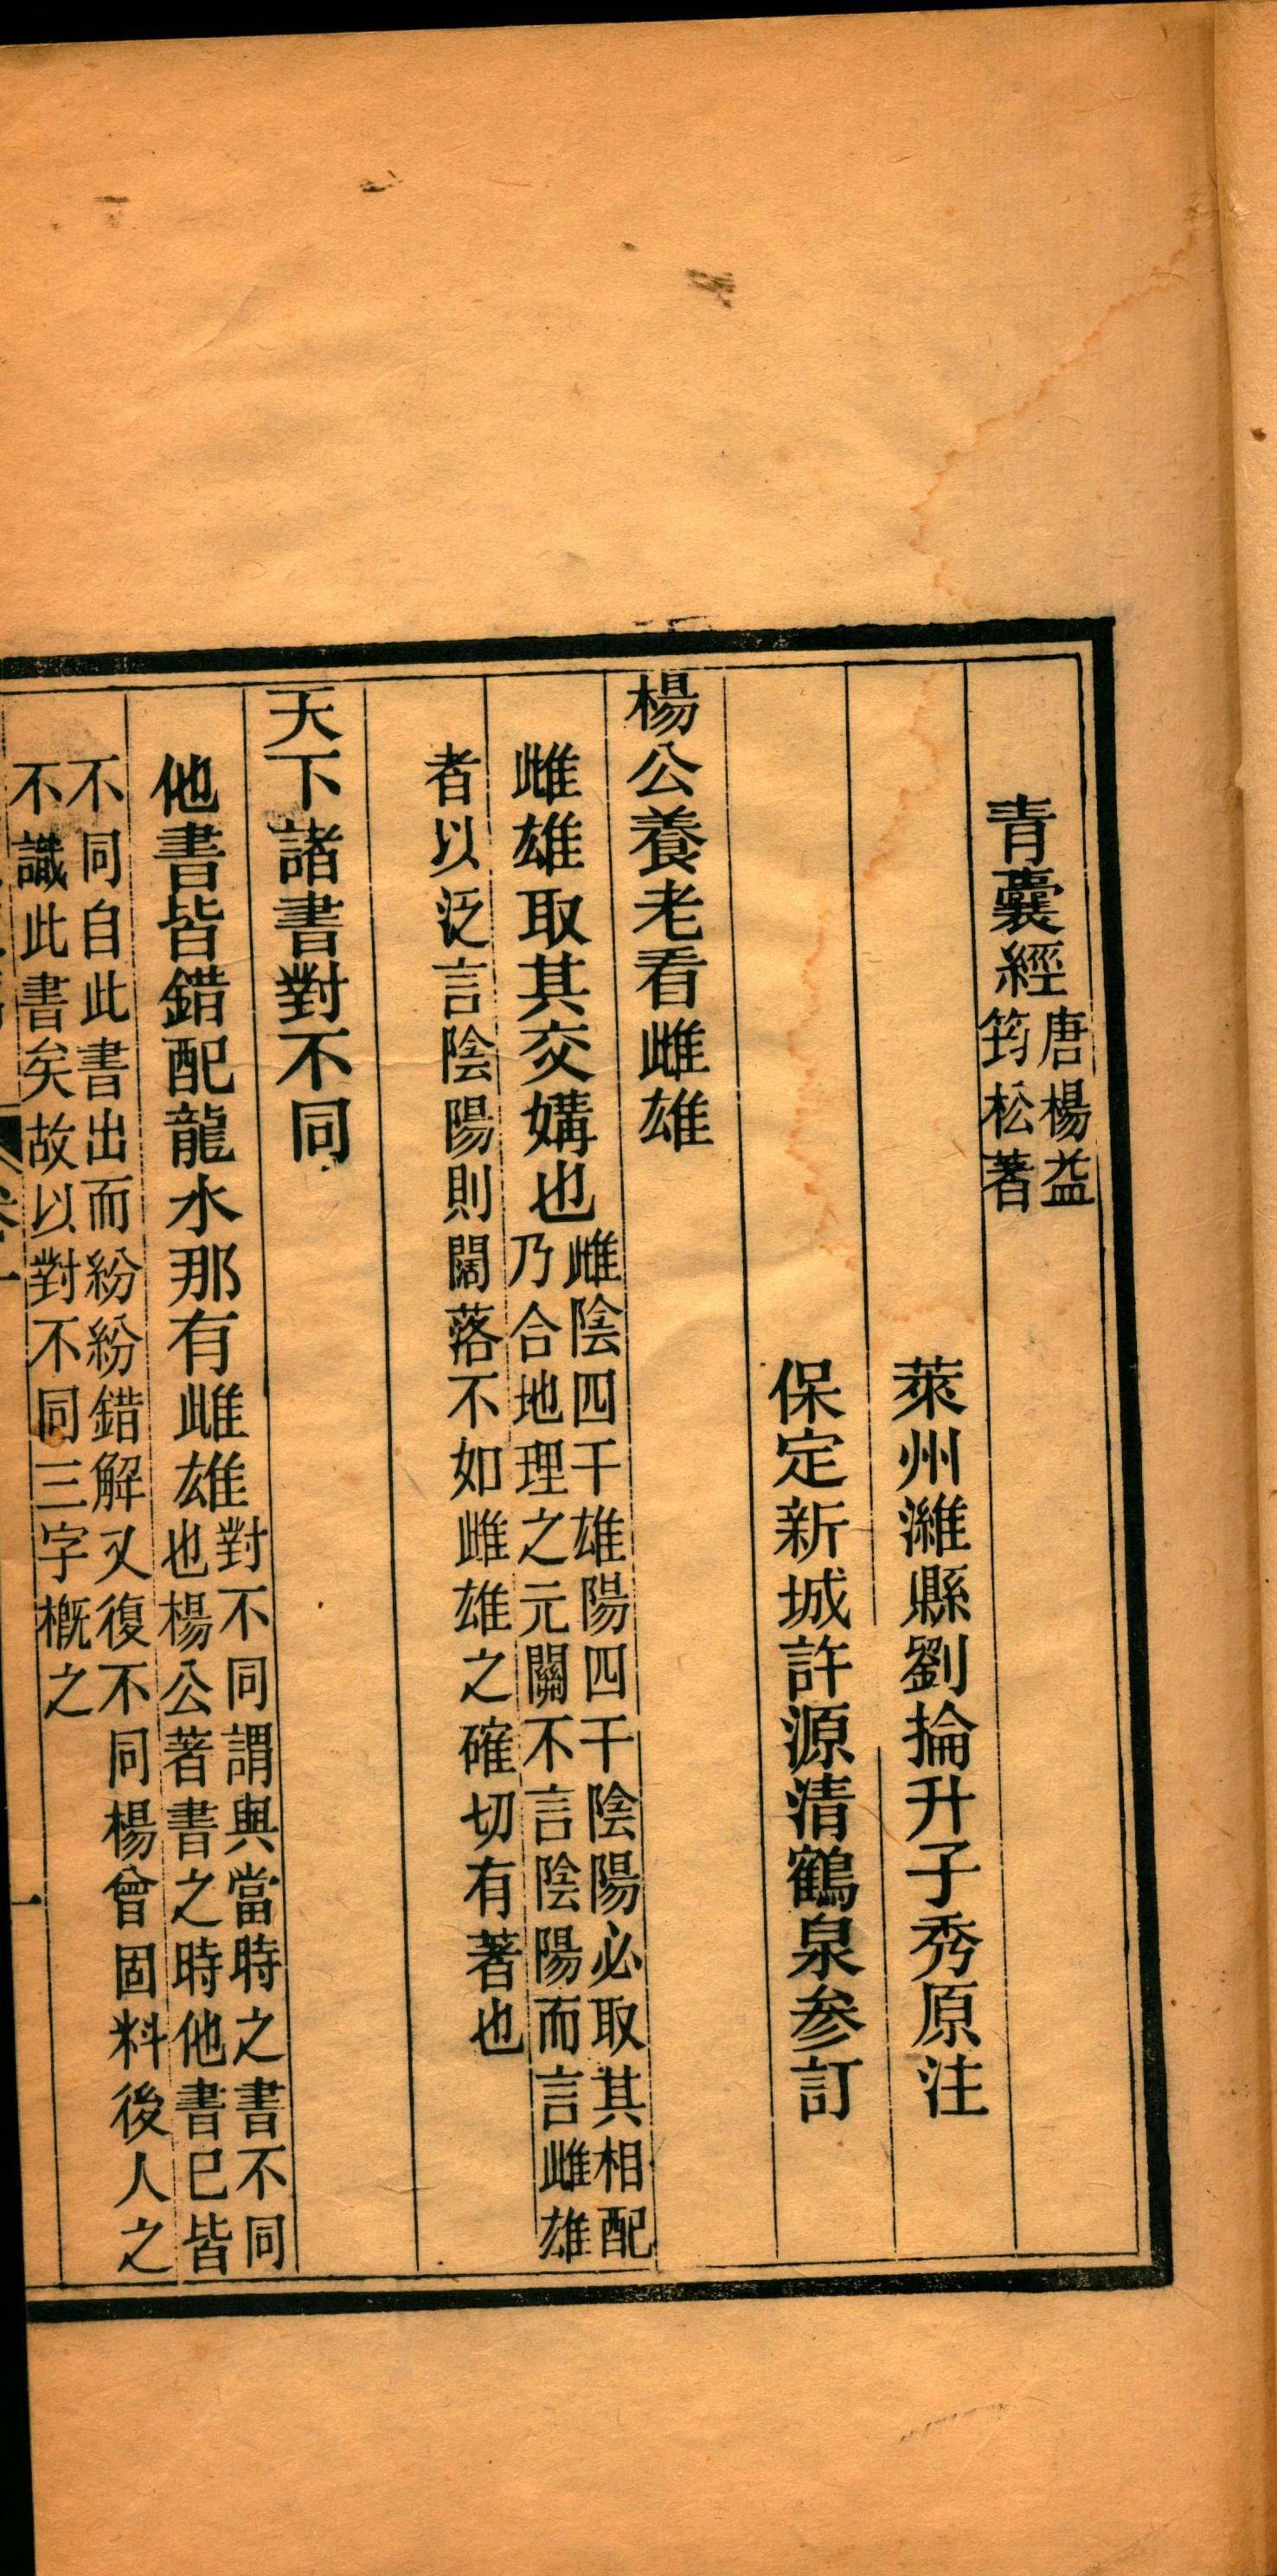 青囊經唐楊益
筠松著
萊州濰縣劉掄升子秀原注
保定新城許源清鶴泉參訂
楊公養老看雌雄
雌雄取其交媾也雌陰四干雄陽四干陰陽必取其相配
乃合地理之元關不言陰陽而言雌雄
者以泛言陰陽則闊落不如雌雄之確切有著也
天下諸書對不同
他書皆錯配龍水那有雌雄對不同謂與當時之書不同
也楊公著書之時他書已皆
不同自此書出而紛紛錯解又復不同楊曾固料後人之
不識此書矣故以對不同三字概之
一